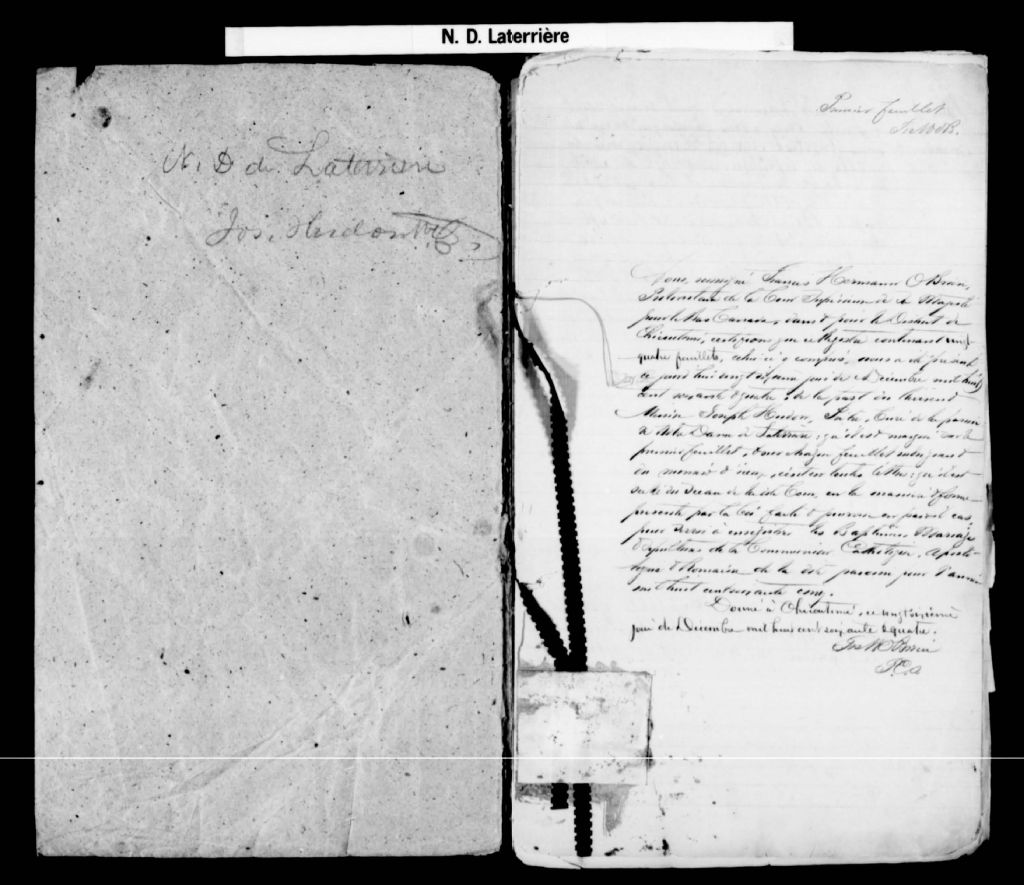 N. D. Laterrière
N. D de Laterriere
Jos. Hudon Ptre
Premier feuillet
Nous, soussigné Francis Hermann OBrien,
Protonotaire de la Cour Supérieure de sa Majesté
pour le Bas Canada, dans & pour le District de
Chicoutimi, certifions que ce Registre contenant vingt
quatre feuillets, celui-ci y compris, nous a été présenté
ce jourd'hui vingt sixieme jour de Décembre mil huit
cent soixante & quatre, de la part du Reverend
Messire Joseph Hudon, Ptre, Curé de la paroisse
de Notre Dame de Laterrière, qu'il est marqué sur le
premier feuillet, & sur chaque feuillet subséquent
du numéro d'icelui, écrit en toutes lettres; qu'il est
scellé du Sceau de la dite Cour, en la manière & forme
prescrite par la loi faite & pourvue en pareil cas,
pour servir à enregistrer les Baptêmes Mariages
& Sépultures de la Communion Catholique, Aposto-
lique & Romaine de la dite paroisse pour l'année
mil huit cent soixante cinq.
Donné à Chicoutimi, ce vingt sixième
jour de Décembre mil huit cent soixante & quatre.
OBrien
P.C.S